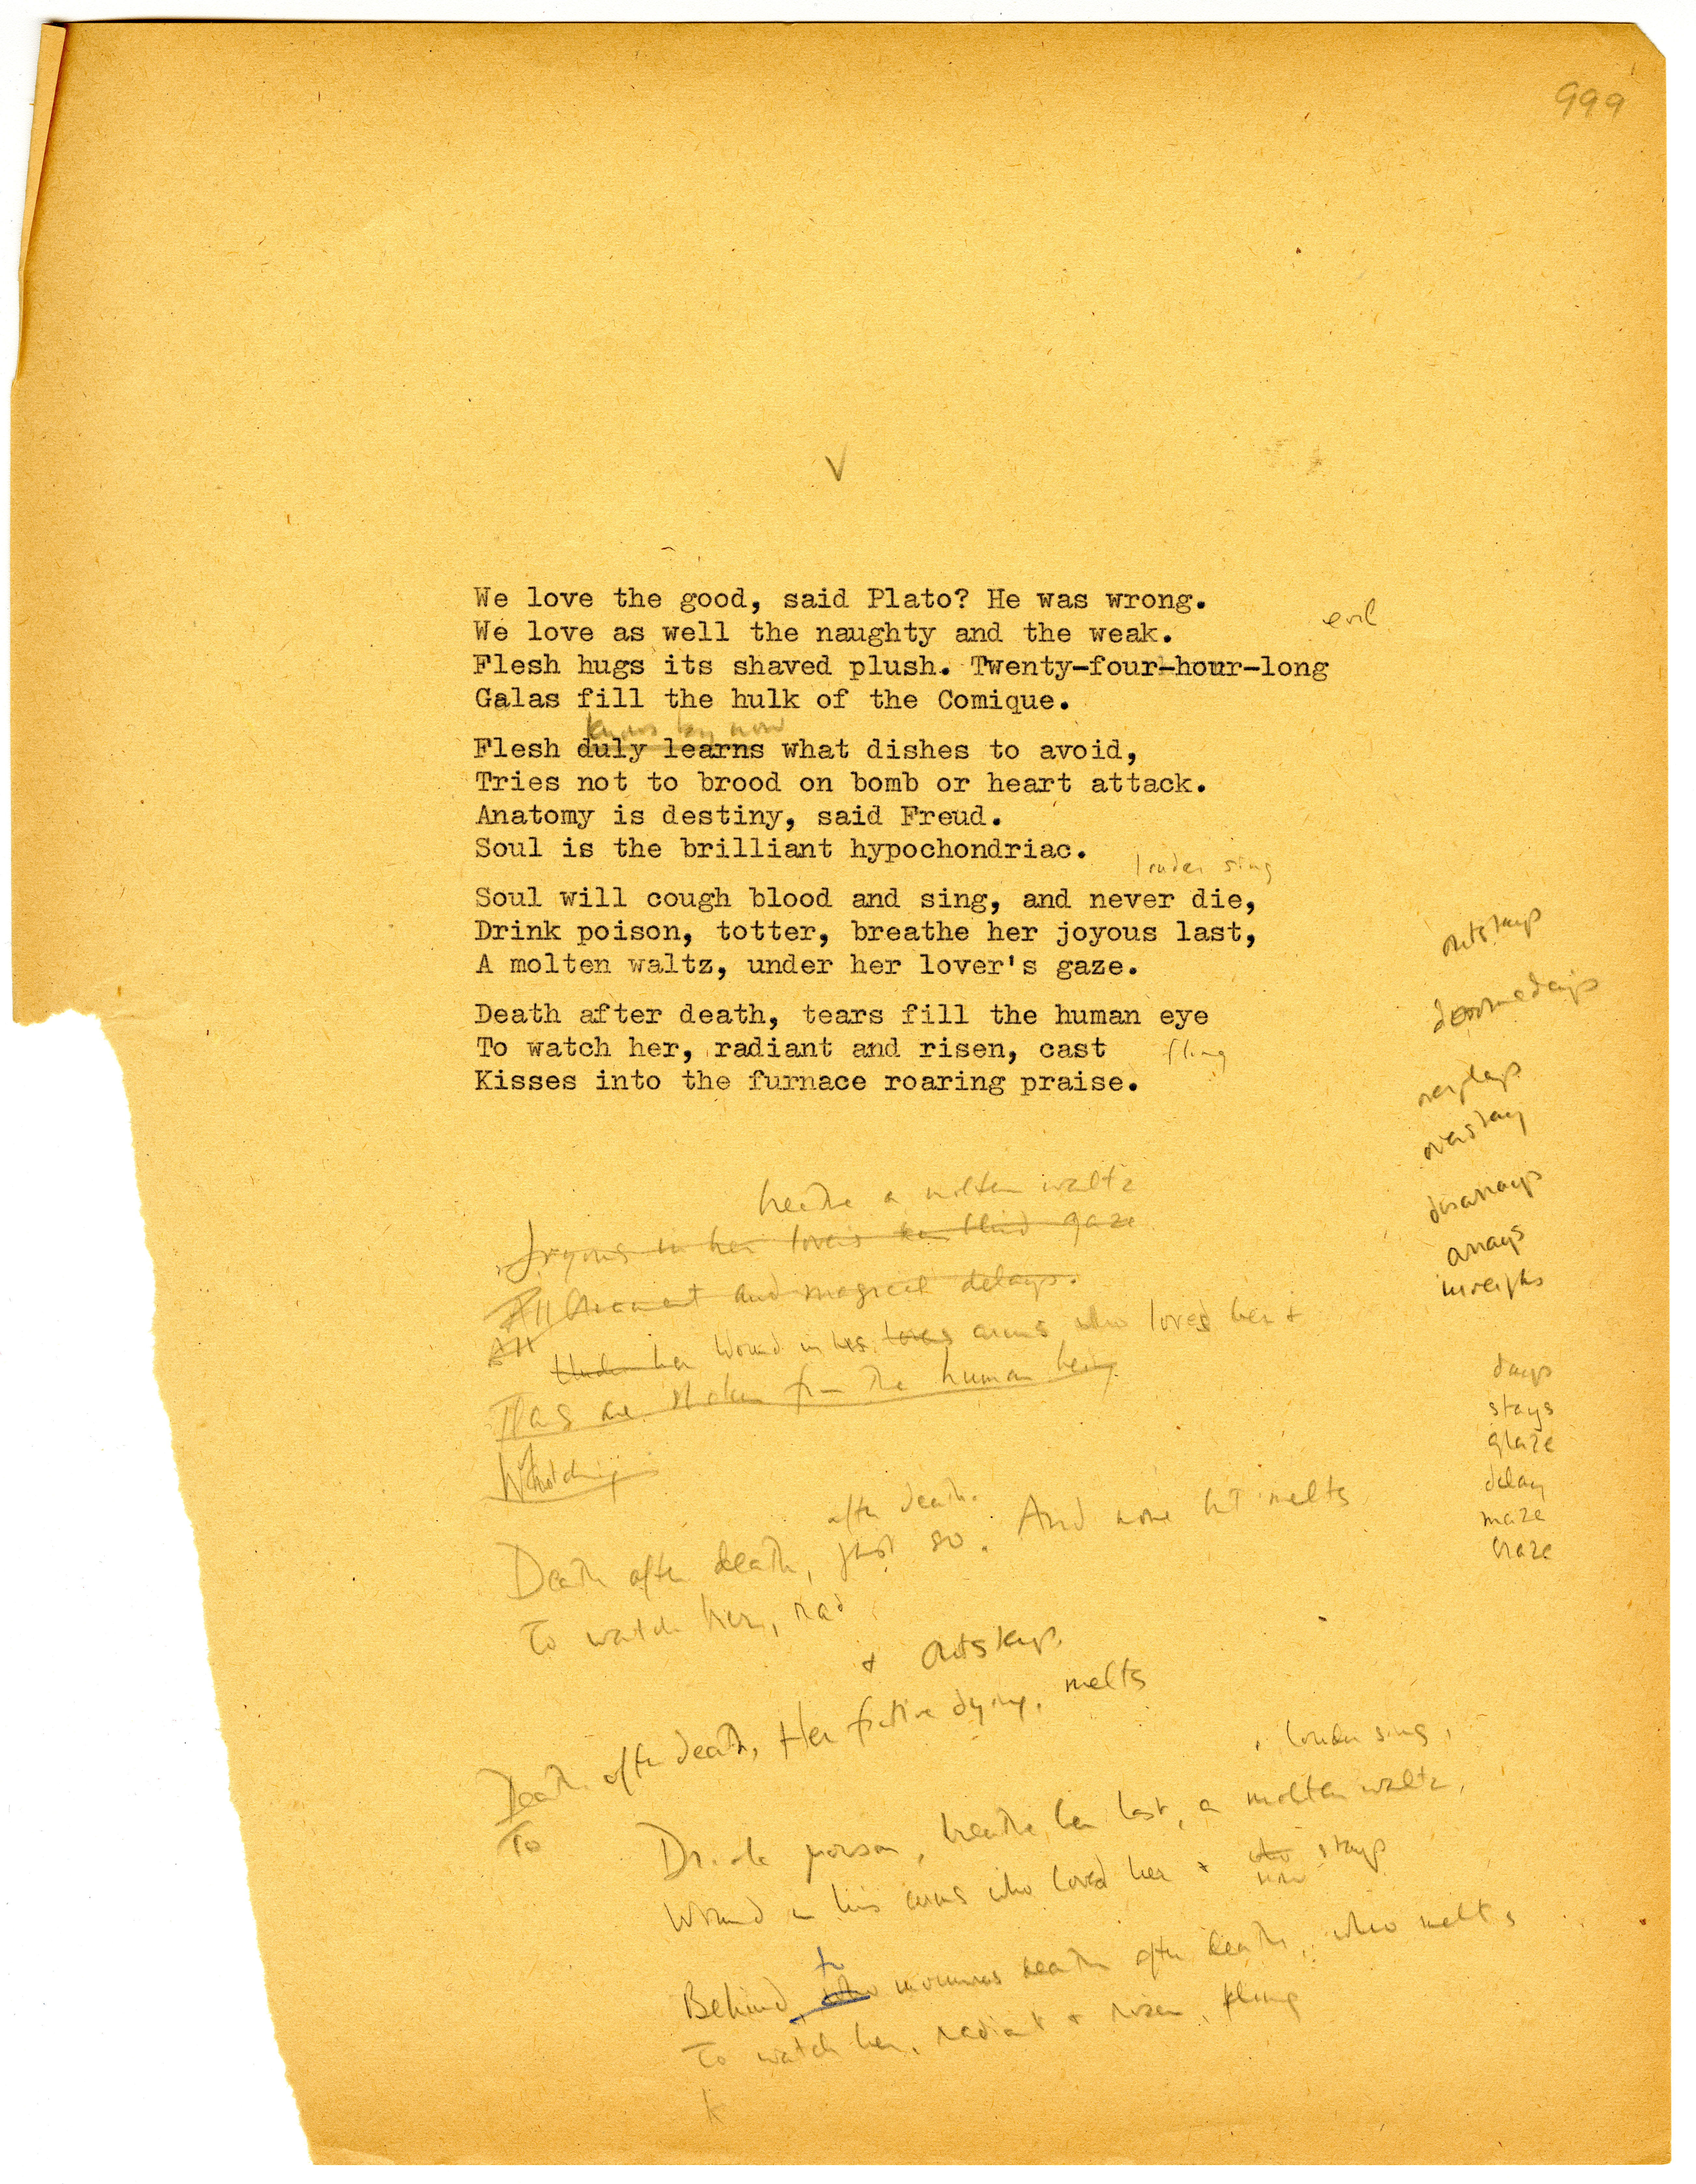 999
V
We love the good, said Plato? He was wrong.
We love as well the naughty and the weak.
evil
Flesh hugs its shaved plush. Twenty-four-hour-long
Galas fill the hulk of the Comique.
knows by now
Flesh duly learns what dishes to avoid,
Tries not to brood on bomb or heart attack.
Anatomy is destiny, said Freud.
Soul is the brilliant hypochondriac.
louder sing
Soul will cough blood and sing, and never die,
Drink poison, totter, breathe her joyous last,
A molten waltz, under her lover's gaze.
Death after death, tears fill the human eye
To watch her, radiant and risen, cast
fling
Kisses into the furnace roaring praise.
outstays
doomsdays
overplays
overstay
disarrays
arrays
inveighs
days
stays
glaze
delay
maze
craze
breathe a molten waltz
Joyous in her lovers blind gaze
All and magical delays.
All
Under her Wound in his arms who loved her +
are stolen from the human being
Watching
after death.
Death after death, just so. And none but melts
To watch her, rad
+ outstays
Death after death, Her fictive dying, melts
To
, louder sing,
Drink poison, breathe her last, a molten waltz,
Wound in his arms who loved her + who stays
now
to
Behind, who mourns death after death, who melts
To watch her, radiant + risen, fling
K